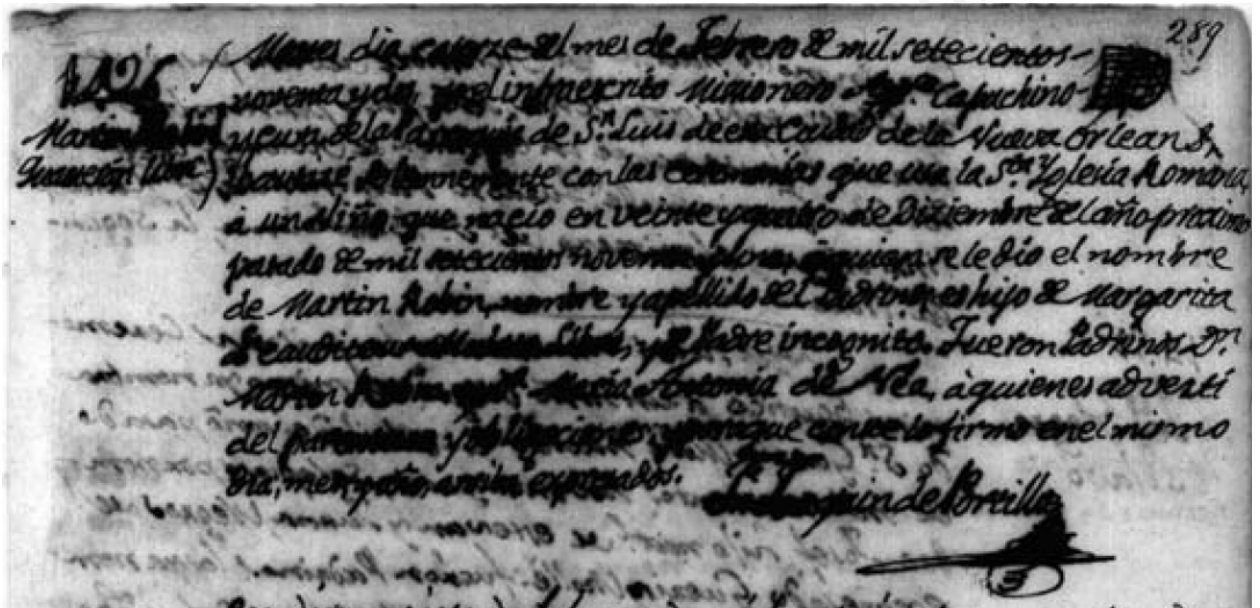 289
Martes dia catorze del mes de Febrero de mil setecientos
noventa y dos, yo el infraescrito Misionero App.co Capuchino
1126
y cura de la Parroquia de Sn. Luis de esta Ciudad de la Nueva Orleans,
Martin Robin
bautizé solemnemente con las ceremonias que usa la Sta. Yglesia Romana,
Quarterón libre
à un Niño que nacio en veinte y quatro de Diciembre del año proximo
pasado de mil setecientos noventa y uno, à quien se le dio el nombre
de Martin Robin, nombre y apellido del Padrino, es hijo de Margarita
Mulata Libre, y de Padre incognito. Fueron Padrinos Dn.
Martin Robin, y Maria Antonia de à quienes adverti
del parentesco y obligaciones, y para que conste lo firmo en el mismo
dia, mes y año, arriba expresados.
Joaquin de Portillo